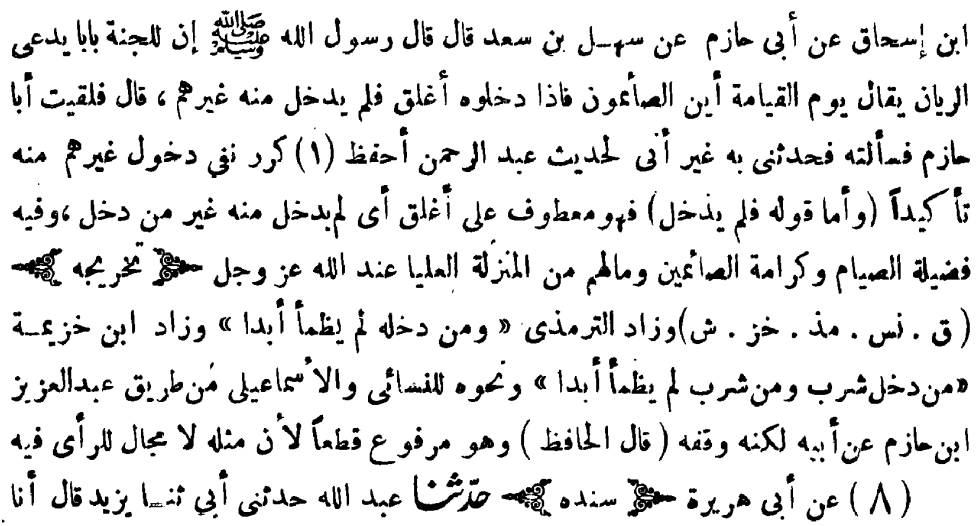 ابن إسحاق عن أبى حازم عن سهـل بن سعد قال قال رسول الله ﷺ إن للجنة بابا يدعى
الريان يقال يوم القيامة أين الصائمون فاذا دخلوه أغلق فلم يدخل منه غيرهم ، قال فلقيت أبا
حازم فسألته فحدثنى به غير أنى لحديث عبد الرحمن أحفظ (١) كرر نفى دخول غيرهم منه
تأكيداً (وأما قوله فلم يدخل) فهو معطوف على أغلق أى لم يدخل منه غير من دخل ،وفيه
فضيلة الصيام وكرامة الصائمين ومالهم من المنزلة العليا عند الله عز وجل ﴿ تخريجه ﴾
( ق . نس . مذ . خز . ش) وزاد الترمذى « ومن دخله لم يظمأ أبدا » وزاد ابن خزيمـة
«من دخل شرب ومن شرب لم يظمأ أبدا » ونحوه للنسائى والاسماعيلى من طريق عبدالعزيز
ابن حازم عن أبيه لكنه وقفه ( قال الحافظ ) وهو مرفوع قطعاً لأن مثله لا مجال للرأى فيه
(٨) عن أبى هريرة ﴿ سنده ﴾ حدثنا عبد الله حدثنى أبي ثنـا يزيد قال أنا